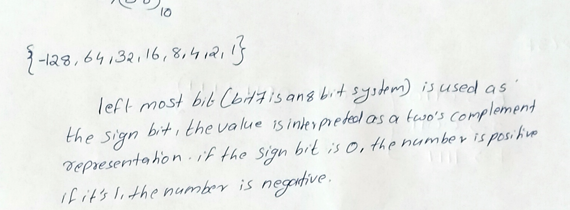 10
{-128, 64, 32, 16, 8, 4, 2, 1}
left most bit (bit 7 is an 8 bit system) is used as
the sign bit, the value is interpreted as a two's complement
representation. if the sign bit is 0, the number is positive
if it's 1, the number is negative.